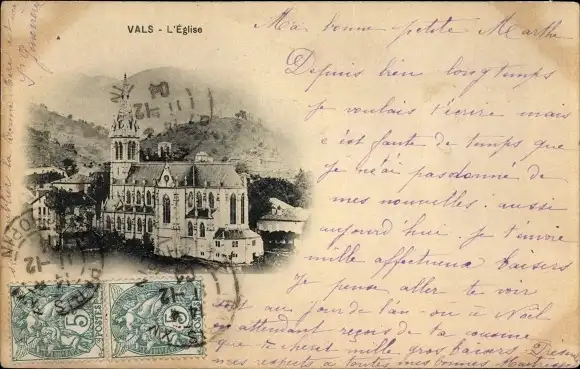 VALS - L'Église
Ma bonne petite Marthe
Depuis bien longtemps
je voulais t'écrire mais
c'est faute de temps que
je n'ai pas donné de
mes nouvelles : aussi
aujourd'hui je t'envoie
mille affectueux baisers
Je pense aller te voir
soit au jour de l'an ou à Noël
en attendant reçois de ta cousine
que te chérit mille gros baisers
mes respects à toutes mes bonnes Maîtresses
5
POSTES
5
POSTES